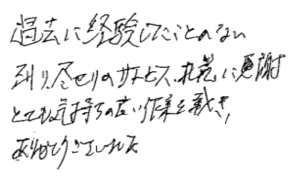 過去に経験したことのない
到り尽せりのサービス、札義に感謝
とても気持ちの良い作業を戴き、
ありがとうございました